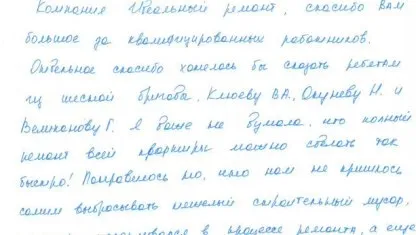 Компания Идеальный ремонт, спасибо Вам
большое за квалифицированных работников.
Отдельное спасибо хотелось бы сказать ребятам
из шестой бригады, Клюеву ВА, Окуневу Н. и
Великанову Г. Я даже не думала, что полный
ремонт всей квартиры можно сделать так
быстро! Понравилось то, что нам не пришлось
самим выбрасывать мешалый строительный мусор,
в процессе ремонта, а ещё